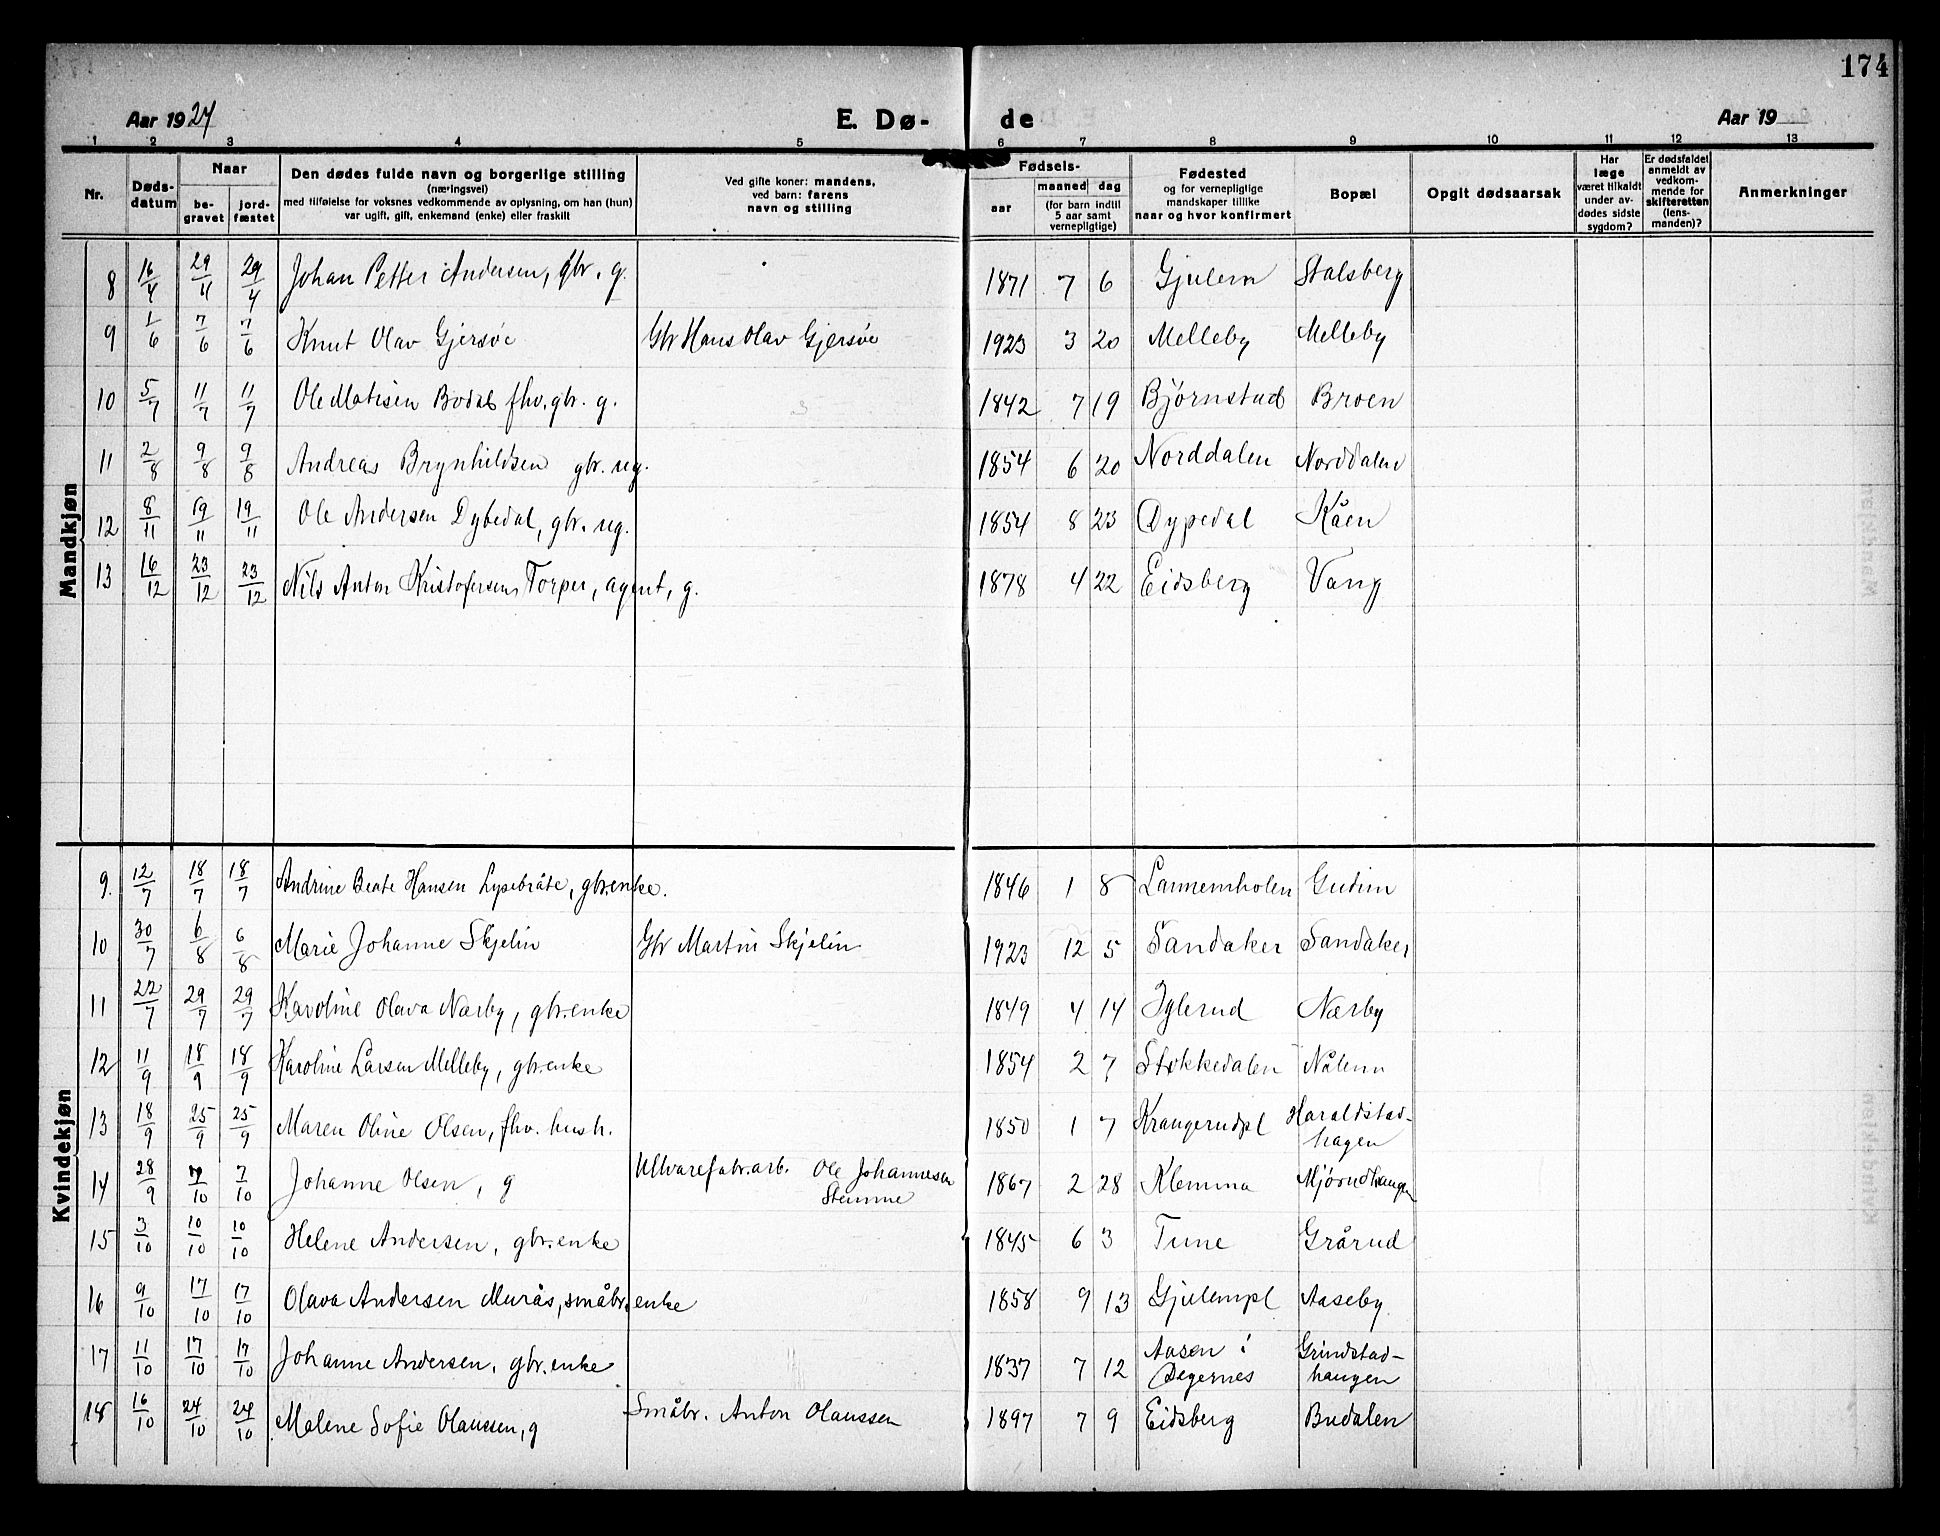 174
Aar 1924 E. Dø- de Aar 19
1 2 3 4 5 6 7 8 9 10 11 12 13
Nr. Døds-datum Naar begravet jordfæstet Den dødes fulde navn og borgerlige stilling (næringsvei) med tilføielse for voksnes vedkommende av oplysning, om han (hun) var ugift, gift, enkemand (enke) eller fraskilt Ved gifte koner: mandens, ved barn: farens navn og stilling Fødsels- aar maaned dag (for barn indtil 5 aar samt vernepligtige) Fødested og for vernepligtige mandskaper tillike naar og hvor konfirmert Bopæl Opgit dødsaarsak Har læge været tilkaldt under avdødes sidste sygdom? Er dødsfaldet anmeldt av vedkommende for skifteretten (lensmanden)? Anmerkninger
Mandkjøn
8 16/4 29/4 29/4 Johan Petter Andersen, gbr. g. 1871 7 6 Gjulem Stalsberg
9 1/6 7/6 7/6 Knut Olav Gjersøe Gbr Hans Olav Gjersøe 1923 3 20 Melleby Melleby
10 5/7 11/7 11/7 Ole Matisen Bodal fhv. gbr. g. 1842 7 19 Bjørnstad Broen
11 2/8 9/8 9/8 Andreas Brynhildsen gbr. ug. 1854 6 20 Norddalen Norddalen
12 8/11 19/11 19/11 Ole Andersen Dybedal, gbr. ug. 1854 8 23 Dypedal Kåen
13 16/12 23/12 23/12 Nils Anton Kristofersen Torper, agent, g. 1878 4 22 Eidsberg Vang
Kvindekjøn
9. 12/7 18/7 18/7 Andrine Beate Hansen Lysebråte, gbr.enke. 1846 1 8 Lannemholen Gudim
10 30/7 6/8 6/8 Marie Johanne Skjelin Gbr Martin Skjelin 1923 12 5 Sandaker Sandaker
11 22/7 29/7 29/7 Karoline Olava Nærby, gbr.enke 1849 4 14 Iglerud Nærby
12 11/9 18/9 18/9 Karoline Larsen Melleby, gbr.enke 1854 2 7 Stokkedalen Nålem
13 18/9 25/9 25/9 Maren Oline Olsen, fhv. hush. 1850 1 7 Krangerudpl Haraldstad-
hagen
14 28/9 7/10 7/10 Johanne Olsen, g Ullvarefabr.arb. Ole Johannesen
Stemme 1867 2 28 Klemma Mjørudhaugen
15 3/10 10/10 10/10 Helene Andersen, gbr.enke 1845 6 3 Tune Grårud
16 9/10 17/10 17/10 Olava Andersen Murås, småbr.enke 1858 9 13 Gjulempl Aaseby
17 11/10 17/10 17/10 Johanne Andersen, gbr.enke 1837 7 12 Aasen i
Degernes Grindstad-
haugen
18 16/10 24/10 24/10 Malene Sofie Olaussen, g Småbr. Anton Olaussen 1897 7 9 Eidsberg Budalen